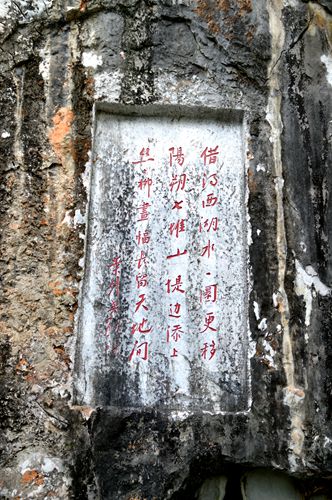 借得西湖水一圜更移
陽朔七堆山堤边添上
丝柳畫幅長留天地间
葉劍英